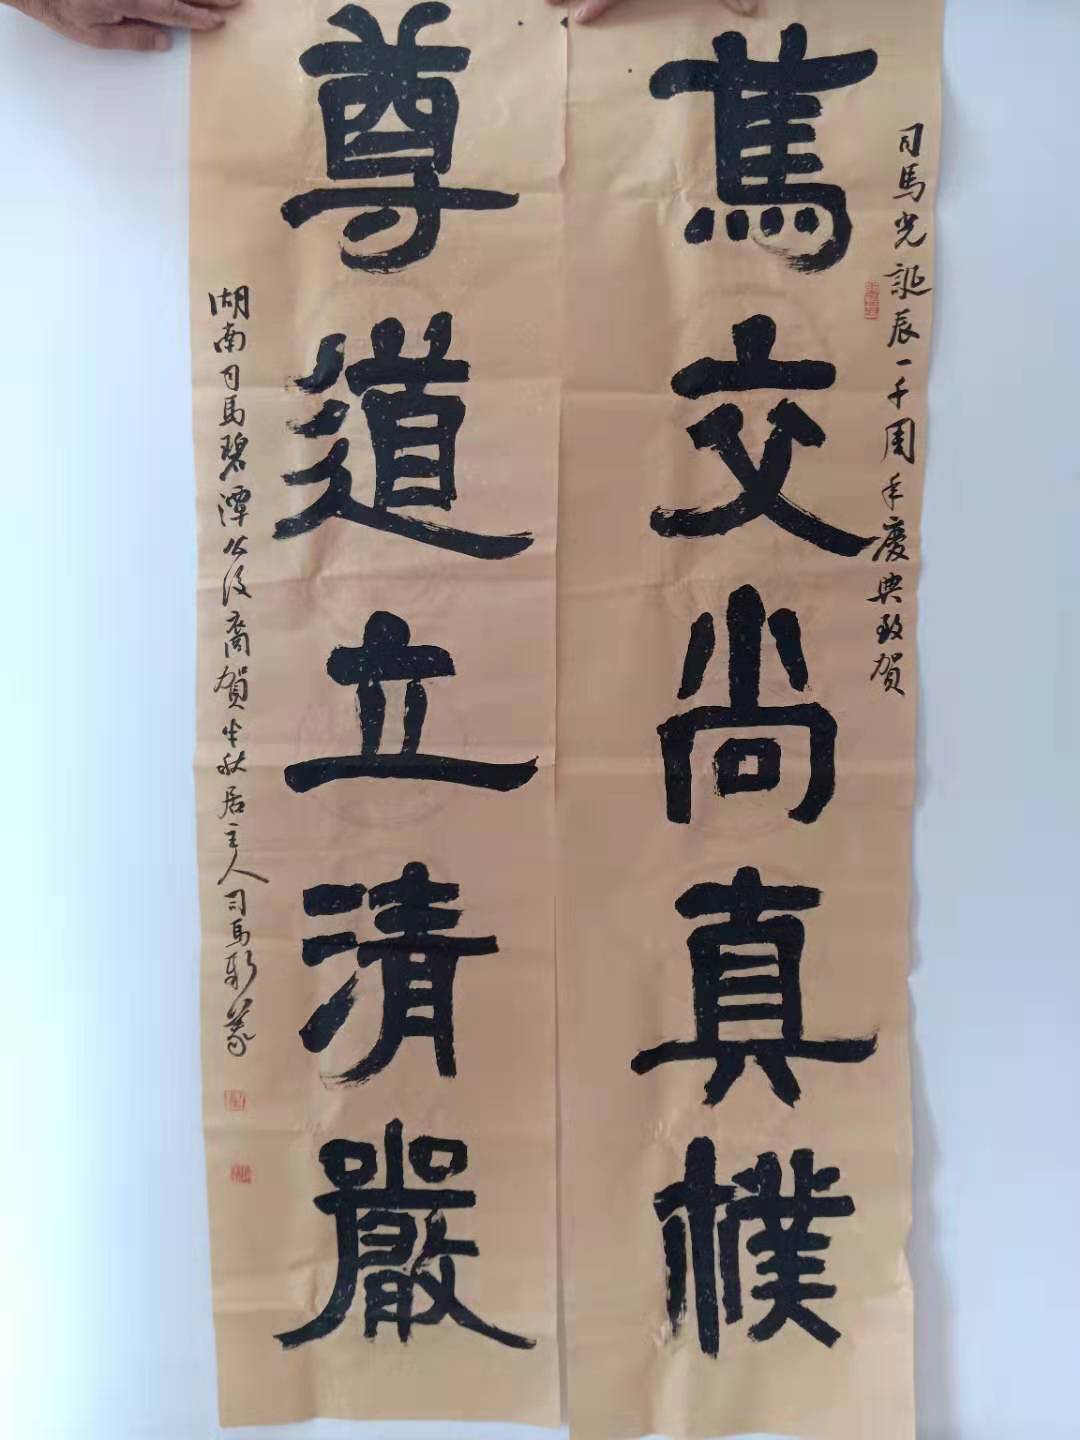 司馬光誕辰一千周年慶典致賀
篤交尚真樸
尊道立清嚴
湖南司馬碧潭公後裔賀半秋居主人司馬彰篆